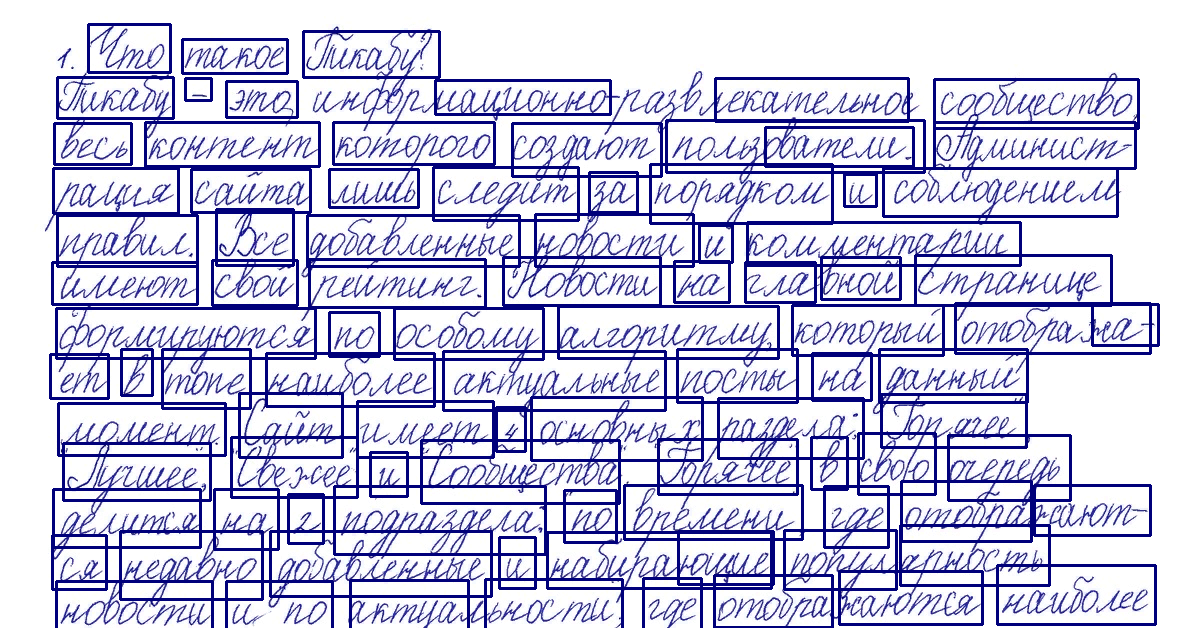 1. Что такое Пикабу?
Пикабу – это информационно-развлекательное сообщество,
весь контент которого создают пользователи. Админист-
рация сайта лишь следит за порядком и соблюдением
правил. Все добавленные новости и комментарии
имеют свой рейтинг. Новости на главной странице
формируются по особому алгоритму, который отобража-
ет в топе наиболее актуальные посты на данный
момент. Сайт имеет 4 основных раздела: "Горячее",
"Лучшее", "Свежее" и "Сообщества". "Горячее" в свою очередь
делится на 2 подраздела: "по времени", где отображают-
ся недавно добавленные и набирающие популярность
новости и "по актуальности", где отображаются наиболее